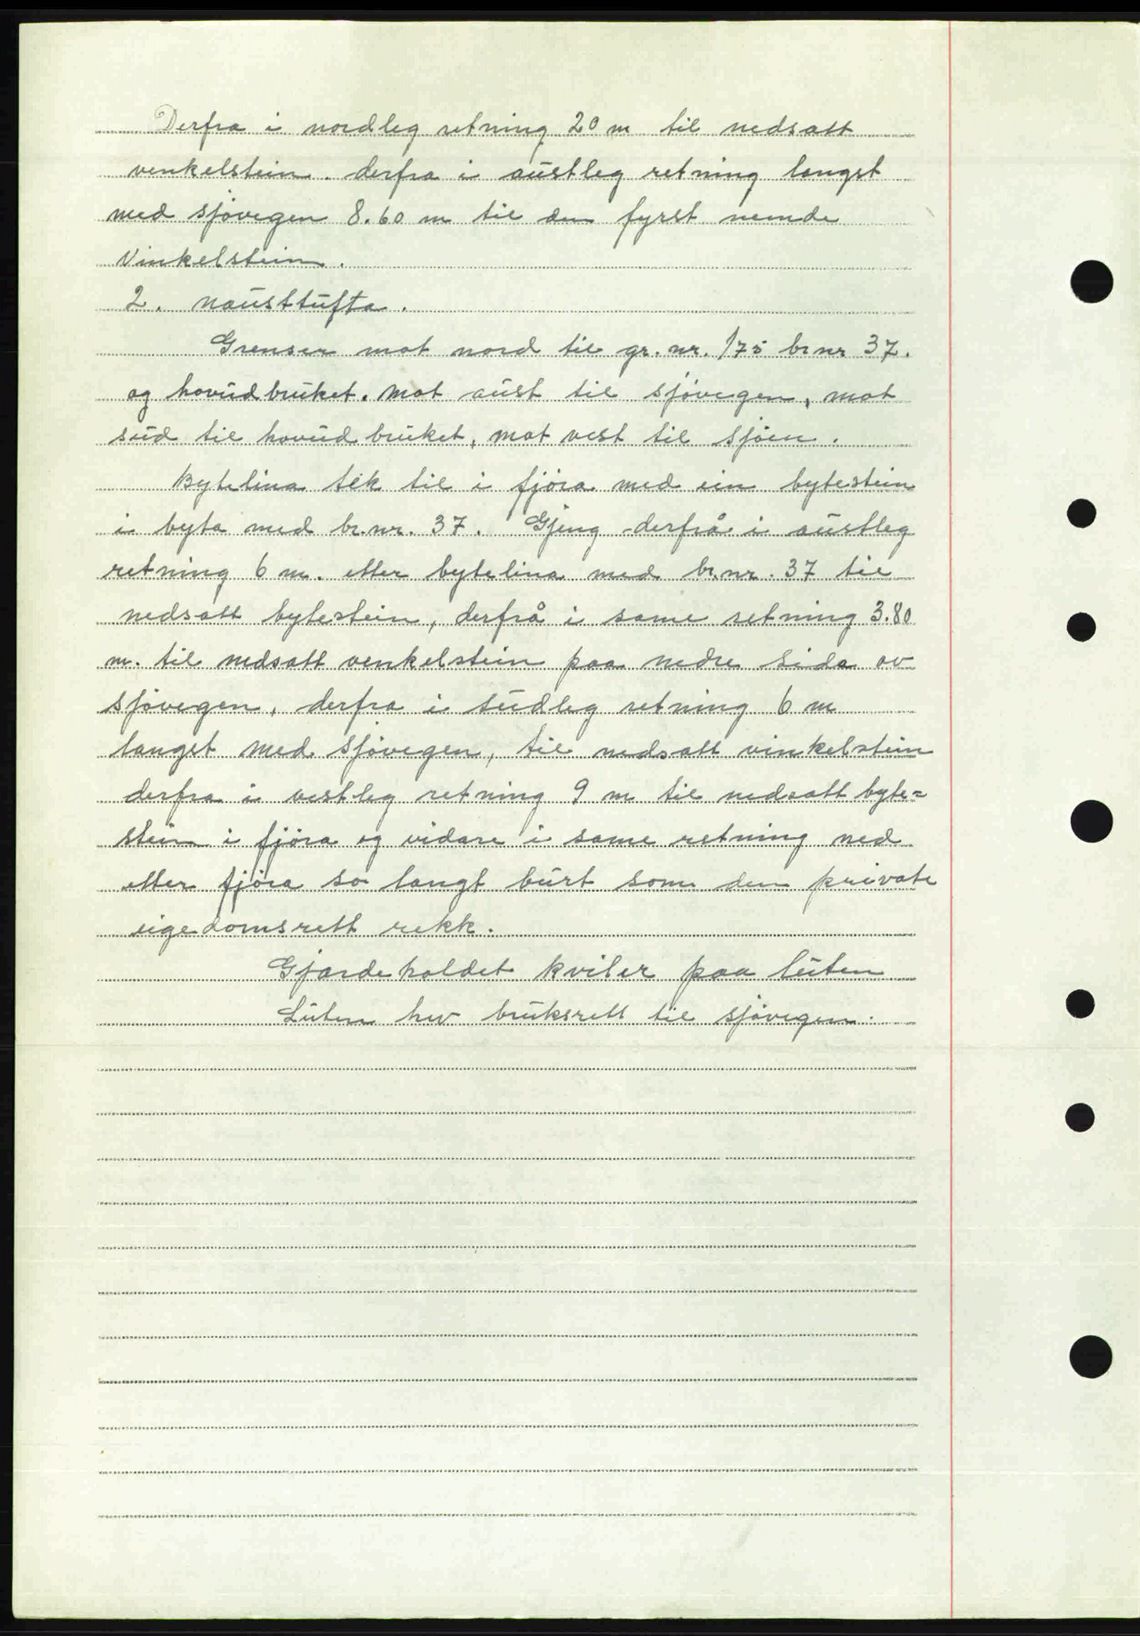 Derfra i nordleg retning 20 m til nedsatt
venkelstein. derfra i austleg retning langst
med sjøvegen 8.60 m til den fyrst nemde
Vinkelstein.
2. nausttufta.
Grenser mot nord til gr. nr. 175 br nr 37.
og hovudbruket. Mot aust til sjøvegen, mot
sud til hovudbruket, mot vest til sjøen.
Bytelina tek til i fjøra med ein bytestein
i byta med br.nr. 37. Gjeng derfrå i austleg
retning 6 m. etter bytelina med br.nr. 37 til
nedsatt bytestein, derfrå i same retning 3.80
m. til nedsatt venkelstein paa nedre Sida av
sjøvegen, derfra i sudleg retning 6 m
langst med sjøvegen, til nedsatt vinkelstein
derfra i vestleg retning 9 m til nedsatt byte=
stein i fjøra og vidare i same retning ned
etter fjøra so langt burt som den private
eigedomsrett rekk.
Gjærdeholdet kviler paa luten
Luten hev bruksrett til sjøvegen.